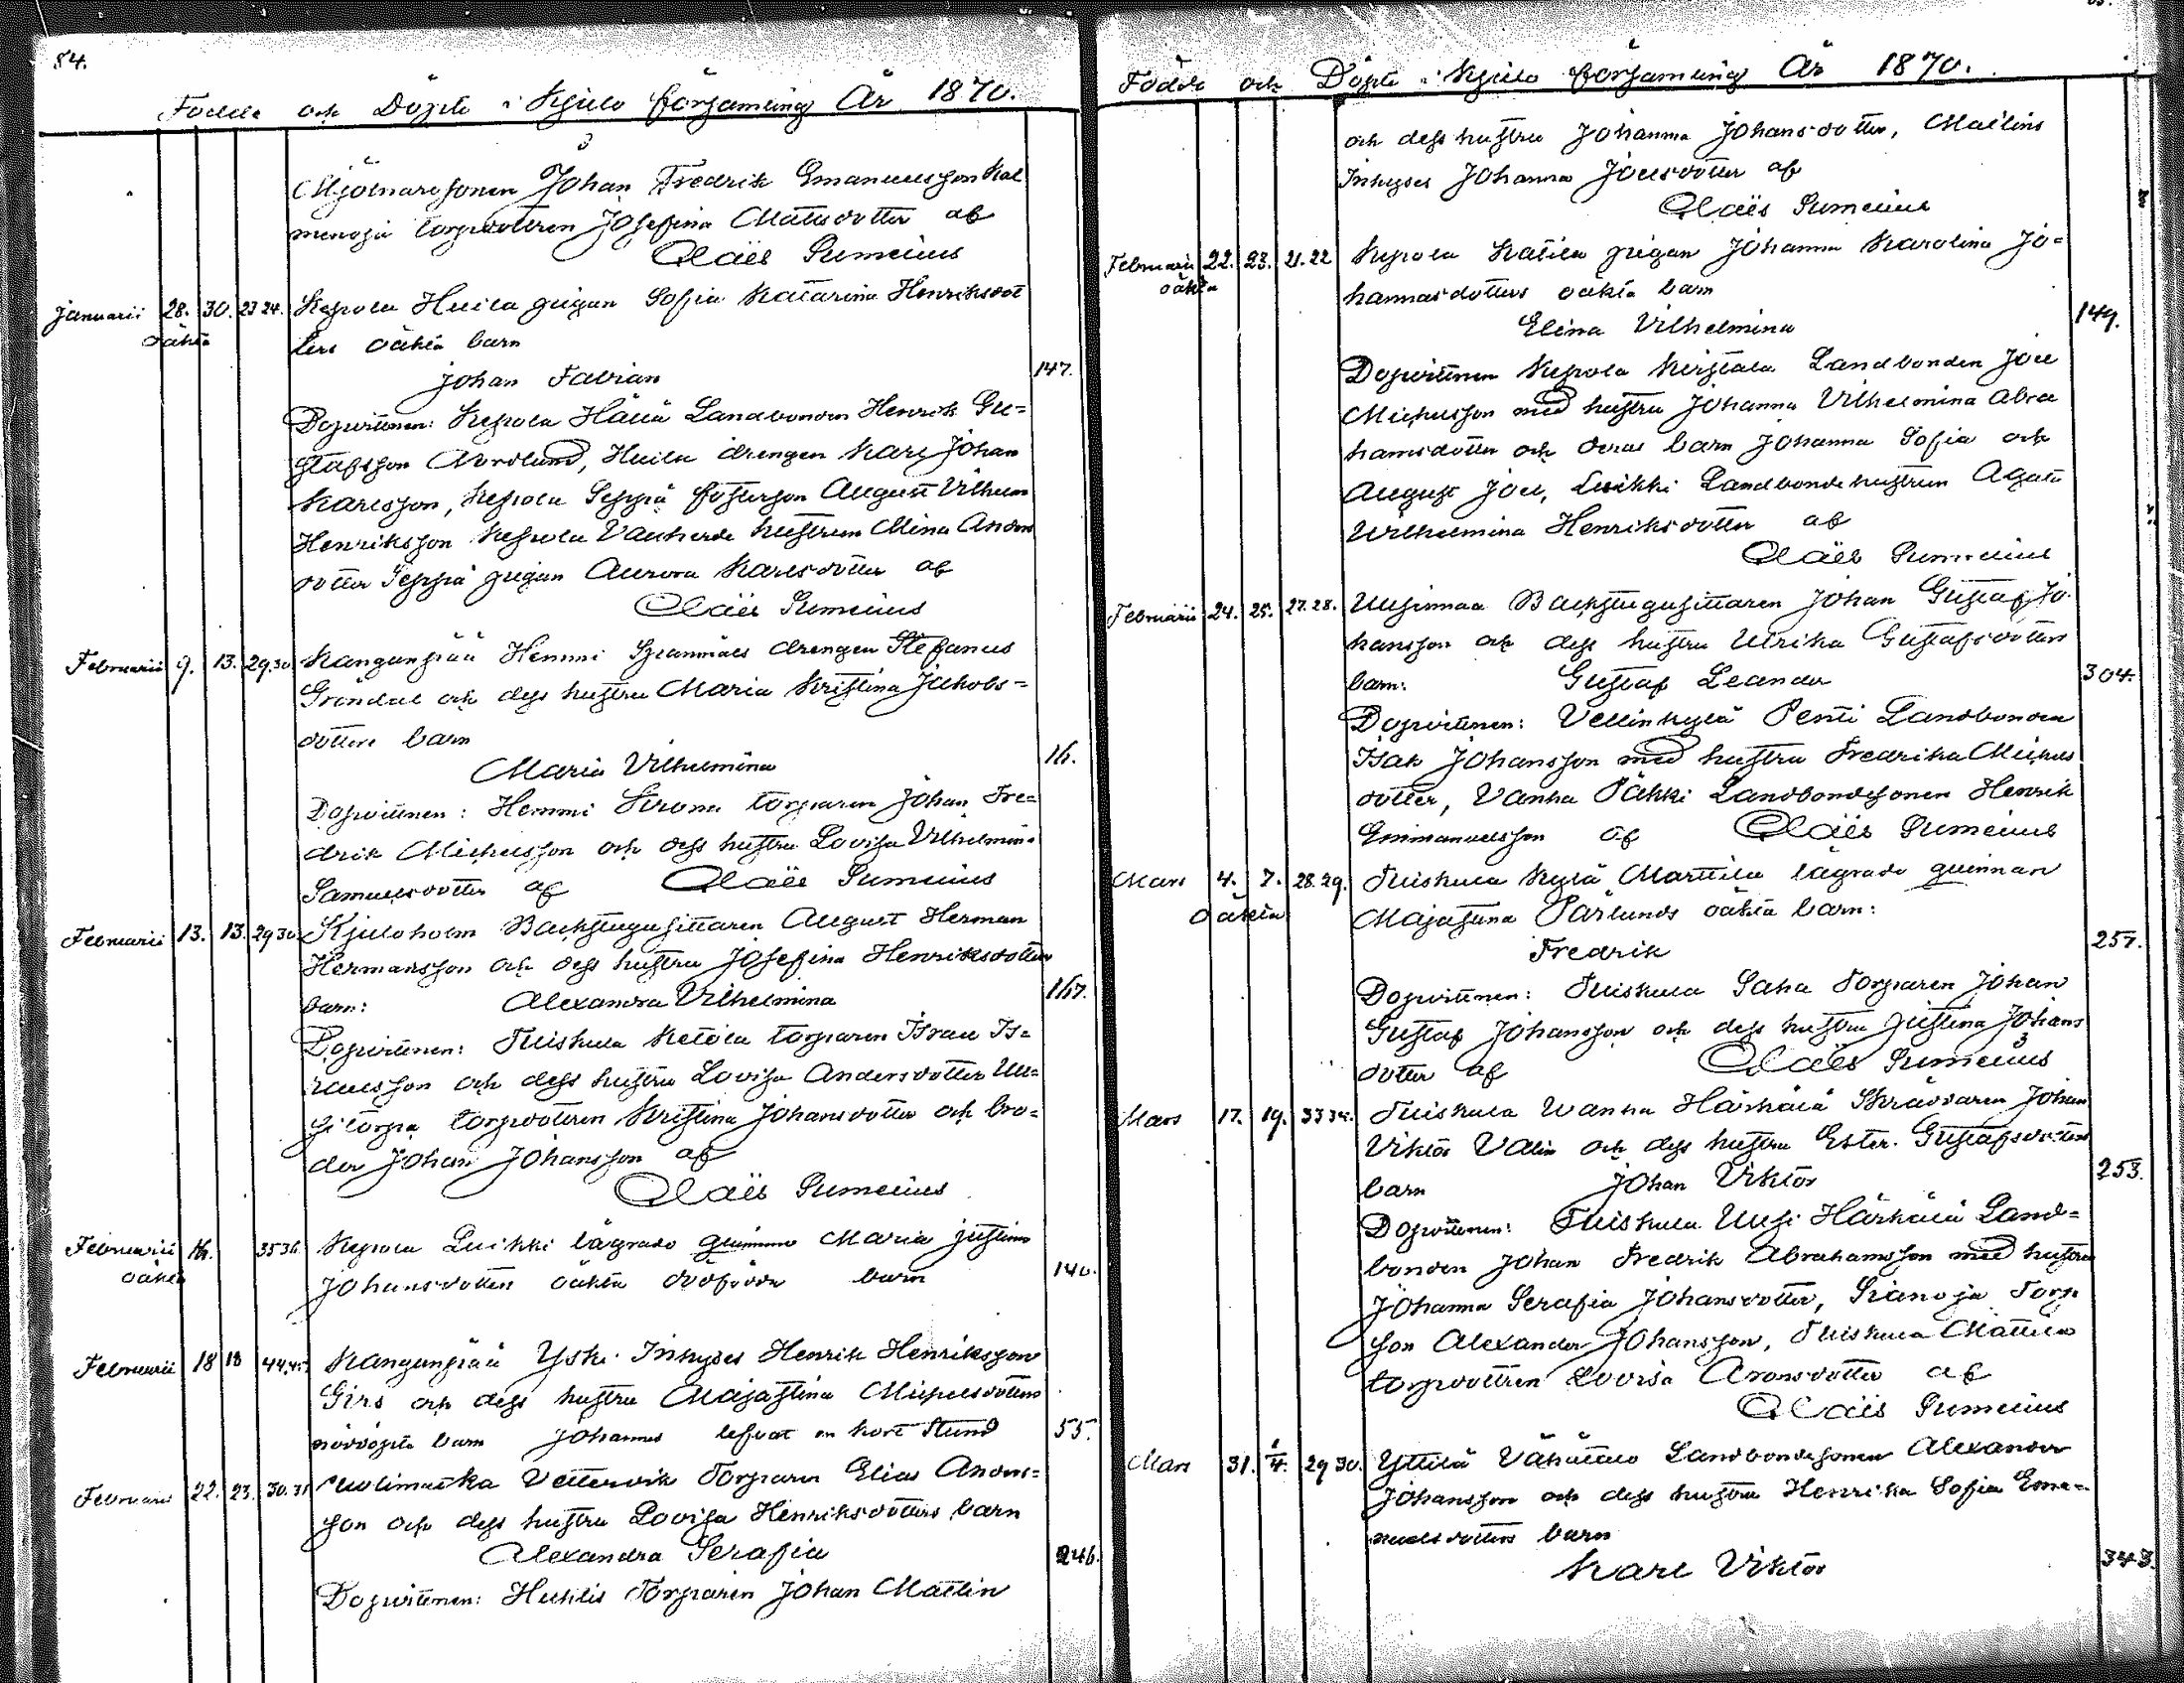 84.
Födde och Döpte i Kjulo församling År 1870.
Mjölnaresonen Johan Fredrik Emanuelsson Kal
menoja torpdottren Josefina Mattsdotter af
Claës Sumelius
Januarii 28. 30. 23 24. Kepola Huila pigan Sofia Katarina Henriksdot
oäkta ters oäkta barn
Johan Fabian 147.
Dopvittnen: Kepola Häliä Landbonden Henrik Gu=
stafsson Nordlund, Huila drengen Karl Johan
Karlsson, Kepola Seppä fosterson August Vilhelm
Henriksson Kepola Vanherde hustrun Mina Anders
dotter Seppä pigan Aurora Karlsdotter af
Claës Sumelius
Februarii 9. 13. 29.30 Kangunpää Hemmi Spannmäls drengen Stefanus
Gröndal och dess hustru Maria Kristina Jakobs=
dotters barn
Maria Vilhelmina 16.
Dopvittnen: Hemmi torparen Johan Fre=
drik Michelsson och dess hustru Lovisa Vilhelmina
Samuelsdotter af Claës Sumelius
Februarii 13. 13. 29 30. Kjuloholm Backstugusittaren August Herman
Hermansson och dess hustru Josefina Henriksdotters
barn: Alexandra Vilhelmina 167.
Dopvittnen: Tuiskula Ketola torparen Israel Is=
raelsson och dess hustru Lovisa Andersdotter Uu=
sitorpa torpdottren Kristina Johansdotter och bro=
der Johan Johansson af
Claës Sumelius
Februarii 16. 35 36. Kepola Luikki lägrade quinno Maria Justina
oäkta Johansdotters oäkta dödfödda barn 140.
Februarii 18 18 44.45. Kangunpää Yski Inhyses Henrik Henriksson
Girs och dess hustru Majastina Michelsdotters
nöddöpta barn Johannes lefvat en kort stund 55.
Februarii 22. 23. 30.31 Vettervik Torparen Elias Anders=
son och dess hustru Lovisa Henriksdotters barn
Alexandra Serafia 246.
Dopvittnen: Huhlis Torparen Johan Matlin
Födde och Döpte i Kjulo församling År 1870.
och dess hustru Johanna Johansdotter, Matlins
Inhyses Johanna Joelsdotter af
Claës Sumelius
Februarii 22. 23. 21.22 Kepola Katila pigan Johanna Karolina Jo=
oäkta hannasdotters oäkta barn
Elina Vilhelmina 149.
Dopvittnen Kepola Kirstala Landbonden Joel
Michelsson med hustru Johanna Vilhelmina Abra
hamsdotter och deras barn Johanna Sofia och
August Joel, Luikki Landbonde hustrun Agata
Wilhelmina Henriksdotter af
Claës Sumelius
Februarii 24. 25. 27.28. Uusinnaa Backstugusittaren Johan Gustaf Jo
hansson och dess hustru Ulrika Gustafsdotters
barn: Gustaf Leander 304.
Dopvittnen: Vellinkylä Penti Landbonden
Isak Johansson med hustru Fredrika Michels
dotter, Vanha Pähki Landbondesonen Henrik
Emmanuelsson af Claës Sumelius
Mars 4. 7. 28.29. Tuiskula Kylä Marttila lägrade quinnan
oäkta Majastina Pärlunds oäkta barn:
Fredrik 257.
Dopvittnen: Tuiskula Saha Torparen Johan
Gustaf Johansson och dess hustru Justina Johans
dotter af Claës Sumelius
Mars 17. 19. 33 34. Tuiskula Wanha Härkälä Skräddaren Johan
Viktor Valin och dess hustru Ester Gustafsdotters
barn Johan Viktor 253.
Dopvittnen: Tuiskula Uusi Härkälä Land=
bonden Johan Fredrik Abrahamsson med hustru
Johanna Serafia Johansdotter, Torp
son Alexander Johansson, Tuiskula Mattila
torpdottren Lovisa Aronsdotter af
Claës Sumelius
Mars 31. 1/4. 29 30. Yttilä Vähätalo Landbondesonen Alexander
Johansson och dess hustru Henrika Sofia Ema=
nuelsdotters barn
Karl Viktor 343.